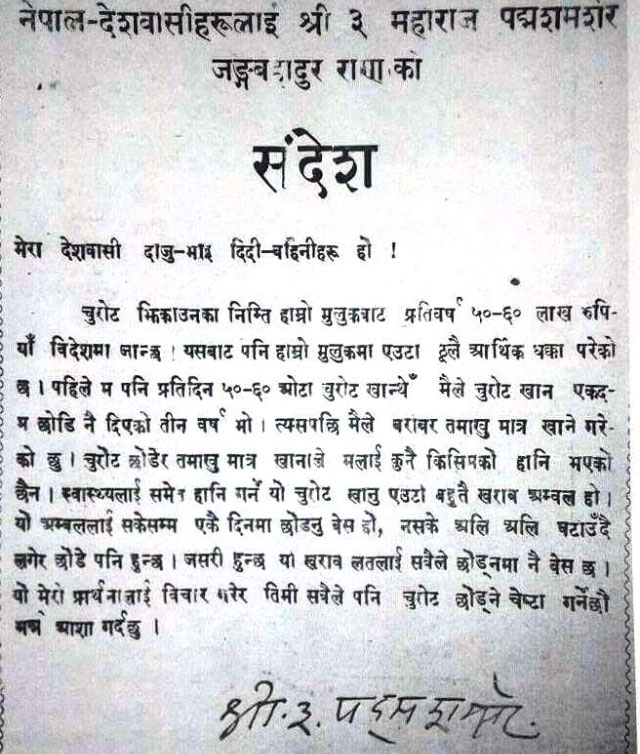 नेपाल-देशवासीहरूलाई श्री ३ महाराज पद्मशमशेर
जङ्गबहादुर राणाको
संदेश
मेरा देशवासी दाजु-भाइ दिदी-बहिनीहरू हो !
चुरोट झिकाउनका निम्ति हाम्रो मुलुकबाट प्रतिवर्ष ५०-६० लाख रुपि-
याँ विदेशमा जान्छ । यसबाट पनि हाम्रो मुलुकमा एउटा ठूलै आर्थिक धक्का परेको
छ । पहिले म पनि प्रतिदिन ५०-६० ओटा चुरोट खान्थेँ मैले चुरोट खान एकद-
म छोडि नै दिएको तीन वर्ष भो । त्यसपछि मैले बराबर तमाखु मात्र खाने गरे-
को छु । चुरोट छोडेर तमाखु मात्र खानाले मलाई कुनै किसिमको हानि भएको
छैन । स्वास्थ्यलाई समेत हानि गर्ने यो चुरोट खानु एउटा बहुतै खराब अम्बल हो ।
यो अम्बललाई सकेसम्म एकै दिनमा छोडनु बेस हो, नसके अलि अलि घटाउँदै
लगेर छोडे पनि हुन्छ । जसरी हुन्छ यो खराब लतलाई सबैले छोड्नमा नै बेस छ ।
यो मेरो प्रार्थनालाई विचार गरेर तिमी सबैले पनि चुरोट छोड्ने चेष्टा गर्नेछौ
भन्ने आशा गर्दछु ।
श्री. ३. पद्मशमशेर.